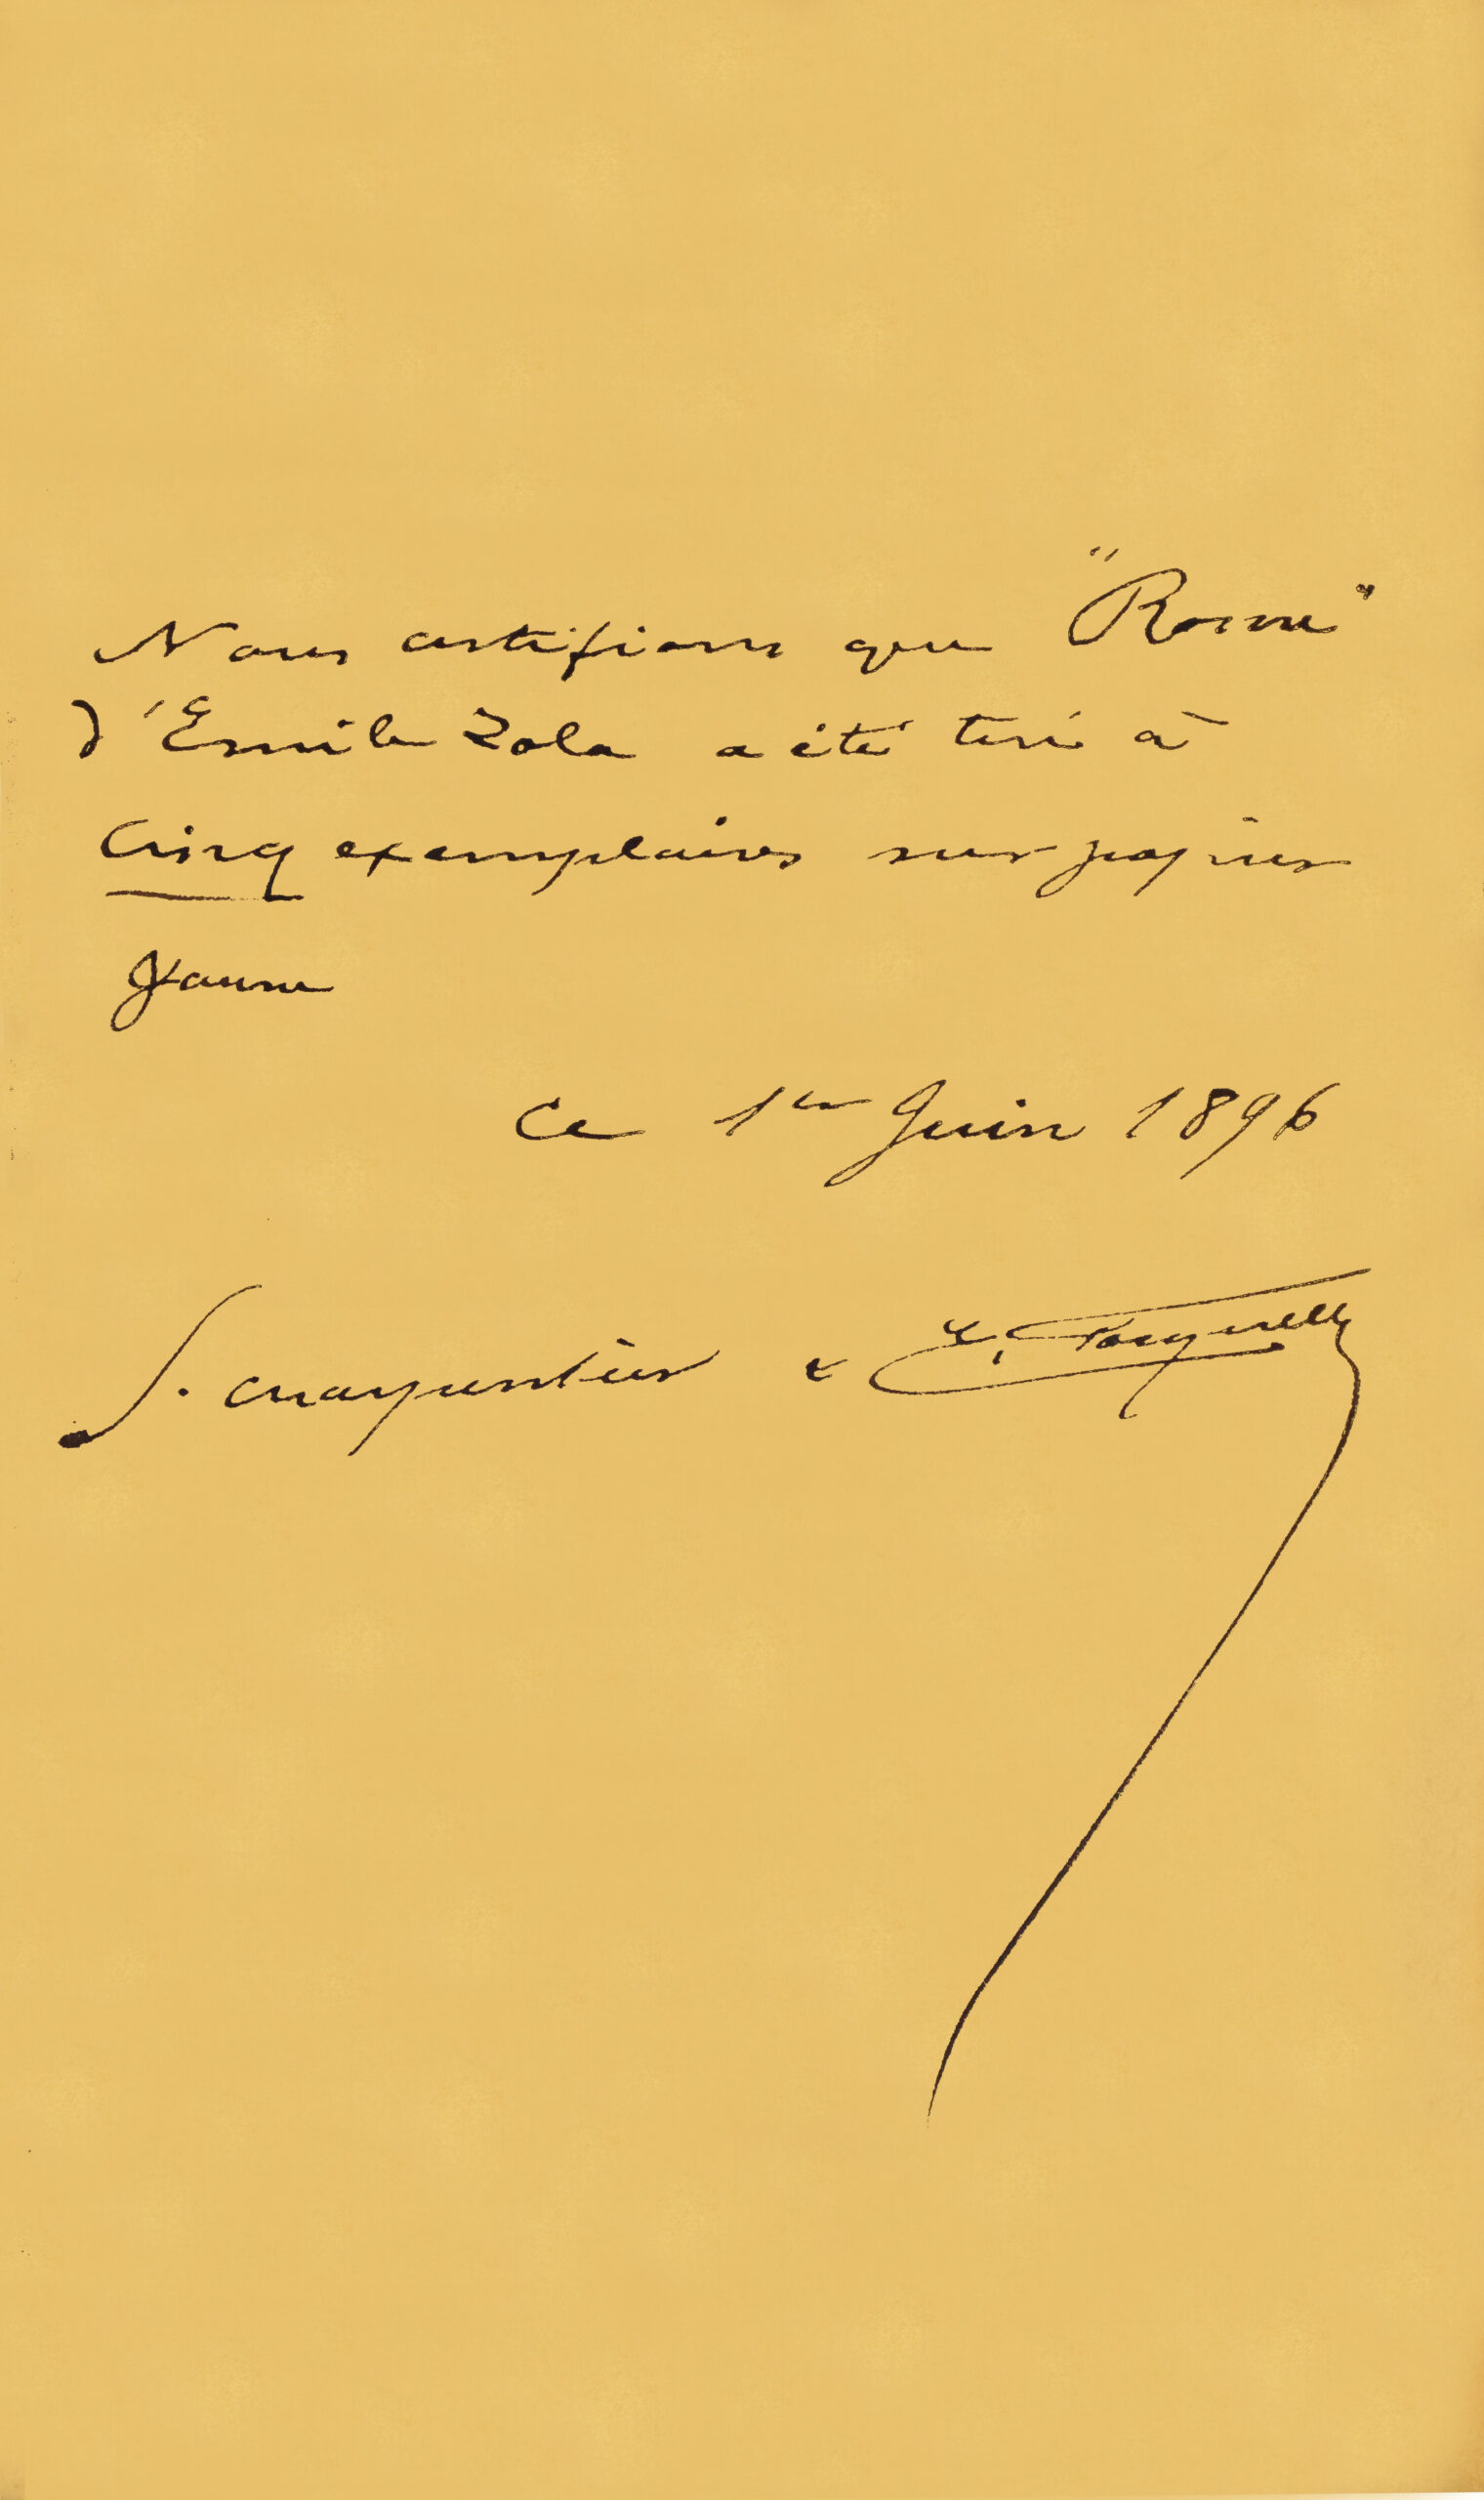 Nous certifions que "Rome"
d'Émile Zola a été tiré à
Cinq exemplaires sur papier
Jaune
Ce 1er Juin 1896
G. Charpentier & E. Fasquelle